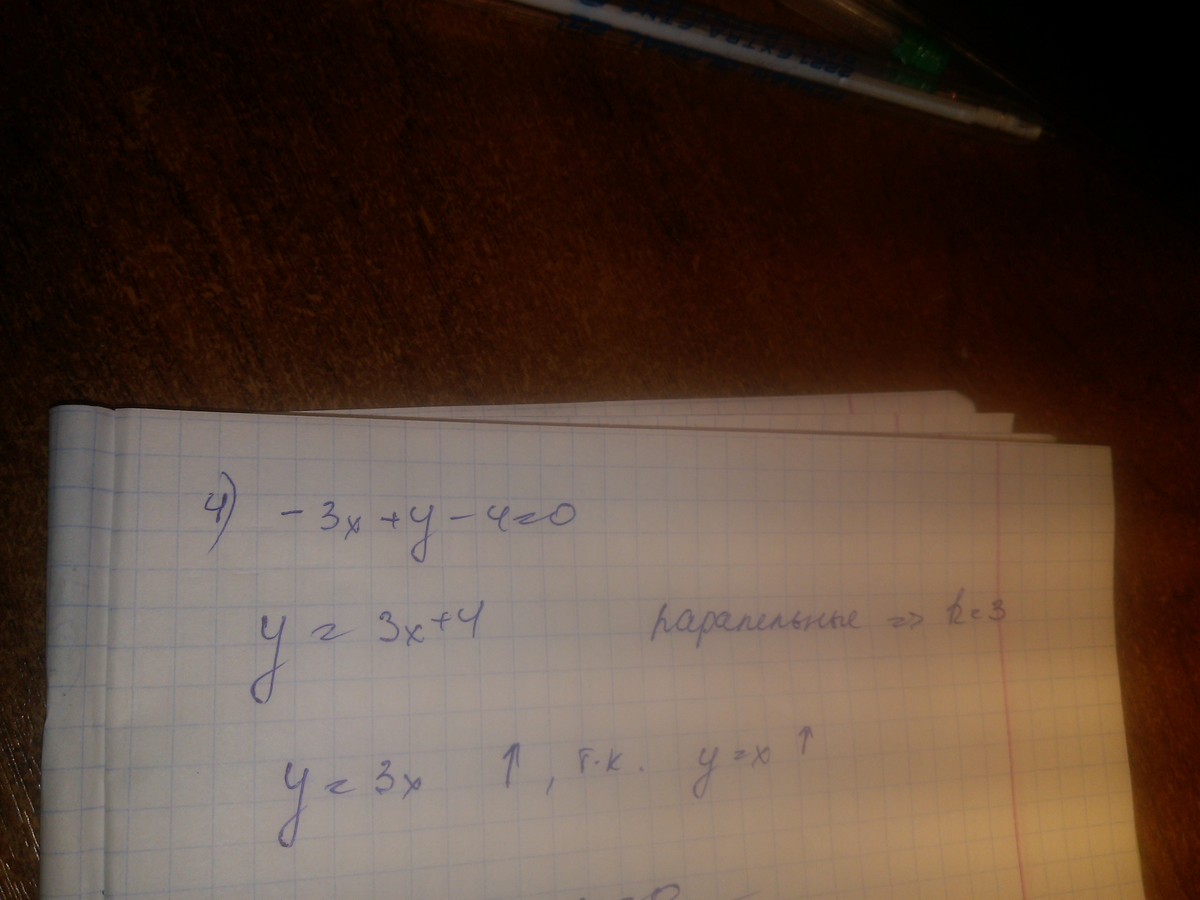 4) -3x+y-4=0
y = 3x+4 парапельные => k=3
y = 3x ↑, т.к. y=x ↑